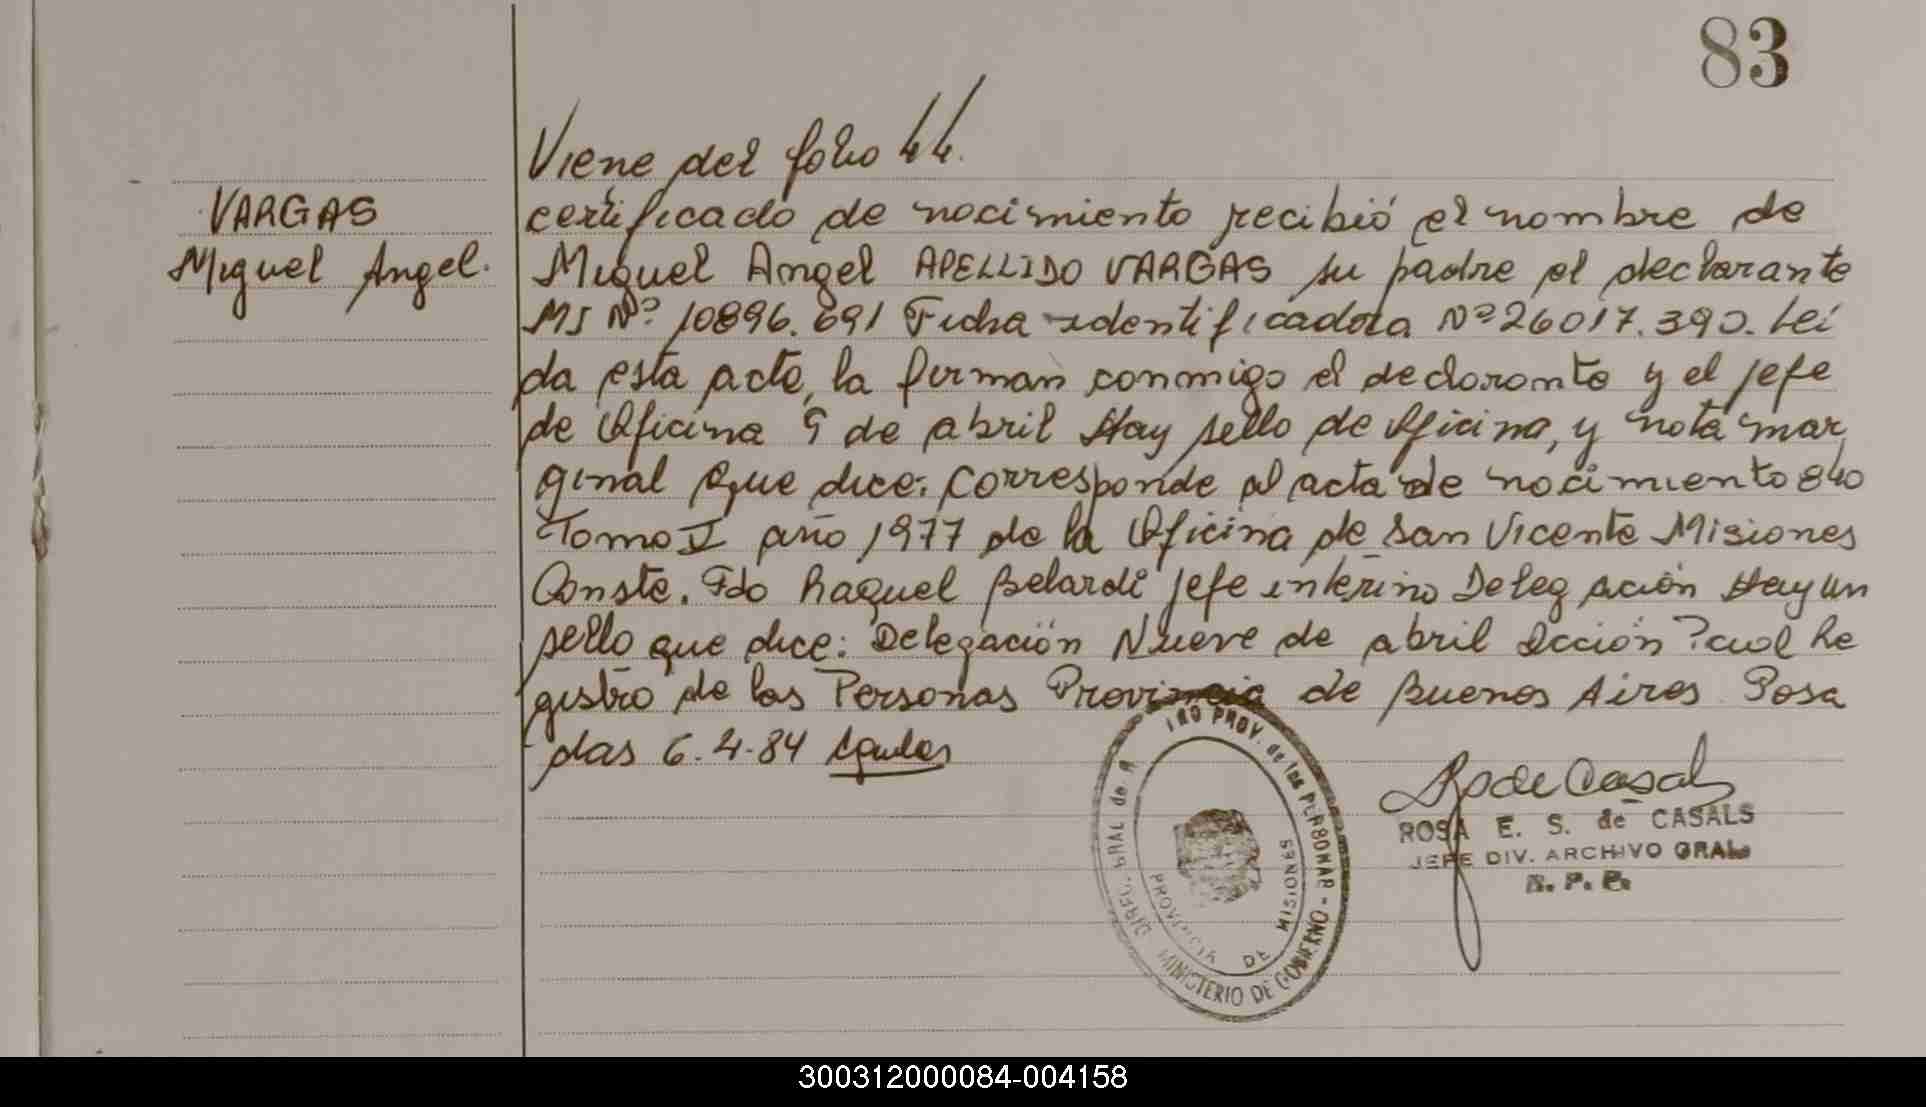 83
Viene del folio 44.
VARGAS
Miguel Angel.
certificado de nacimiento recibió el nombre de
Miguel Angel APELLIDO VARGAS su padre el declarante
MI Nº 10896.691 Ficha identificadora Nº 26017.390. Leí
da esta acta, la firman conmigo el declarante y el jefe
de Oficina 9 de abril Hay sello de Oficina, y nota mar
ginal que dice: Corresponde al acta de nacimiento 840
Tomo V año 1977 de la Oficina de San Vicente Misiones
Conste. Fdo Raquel Belardi jefe interino Delegación Hay un
sello que dice: Delegación Nueve de abril Re
gistro de las Personas Provincia de Buenos Aires Posa
das 6.4.84
DIREC. GRAL de R PROV. de las PERSONAS - MINISTERIO DE GOBERNO -
PROVINCIA DE MISIONES
R de Casals
ROSA E. S. de CASALS
JEFE DIV. ARCHIVO GRAL.
R. P. P.
300312000084-004158